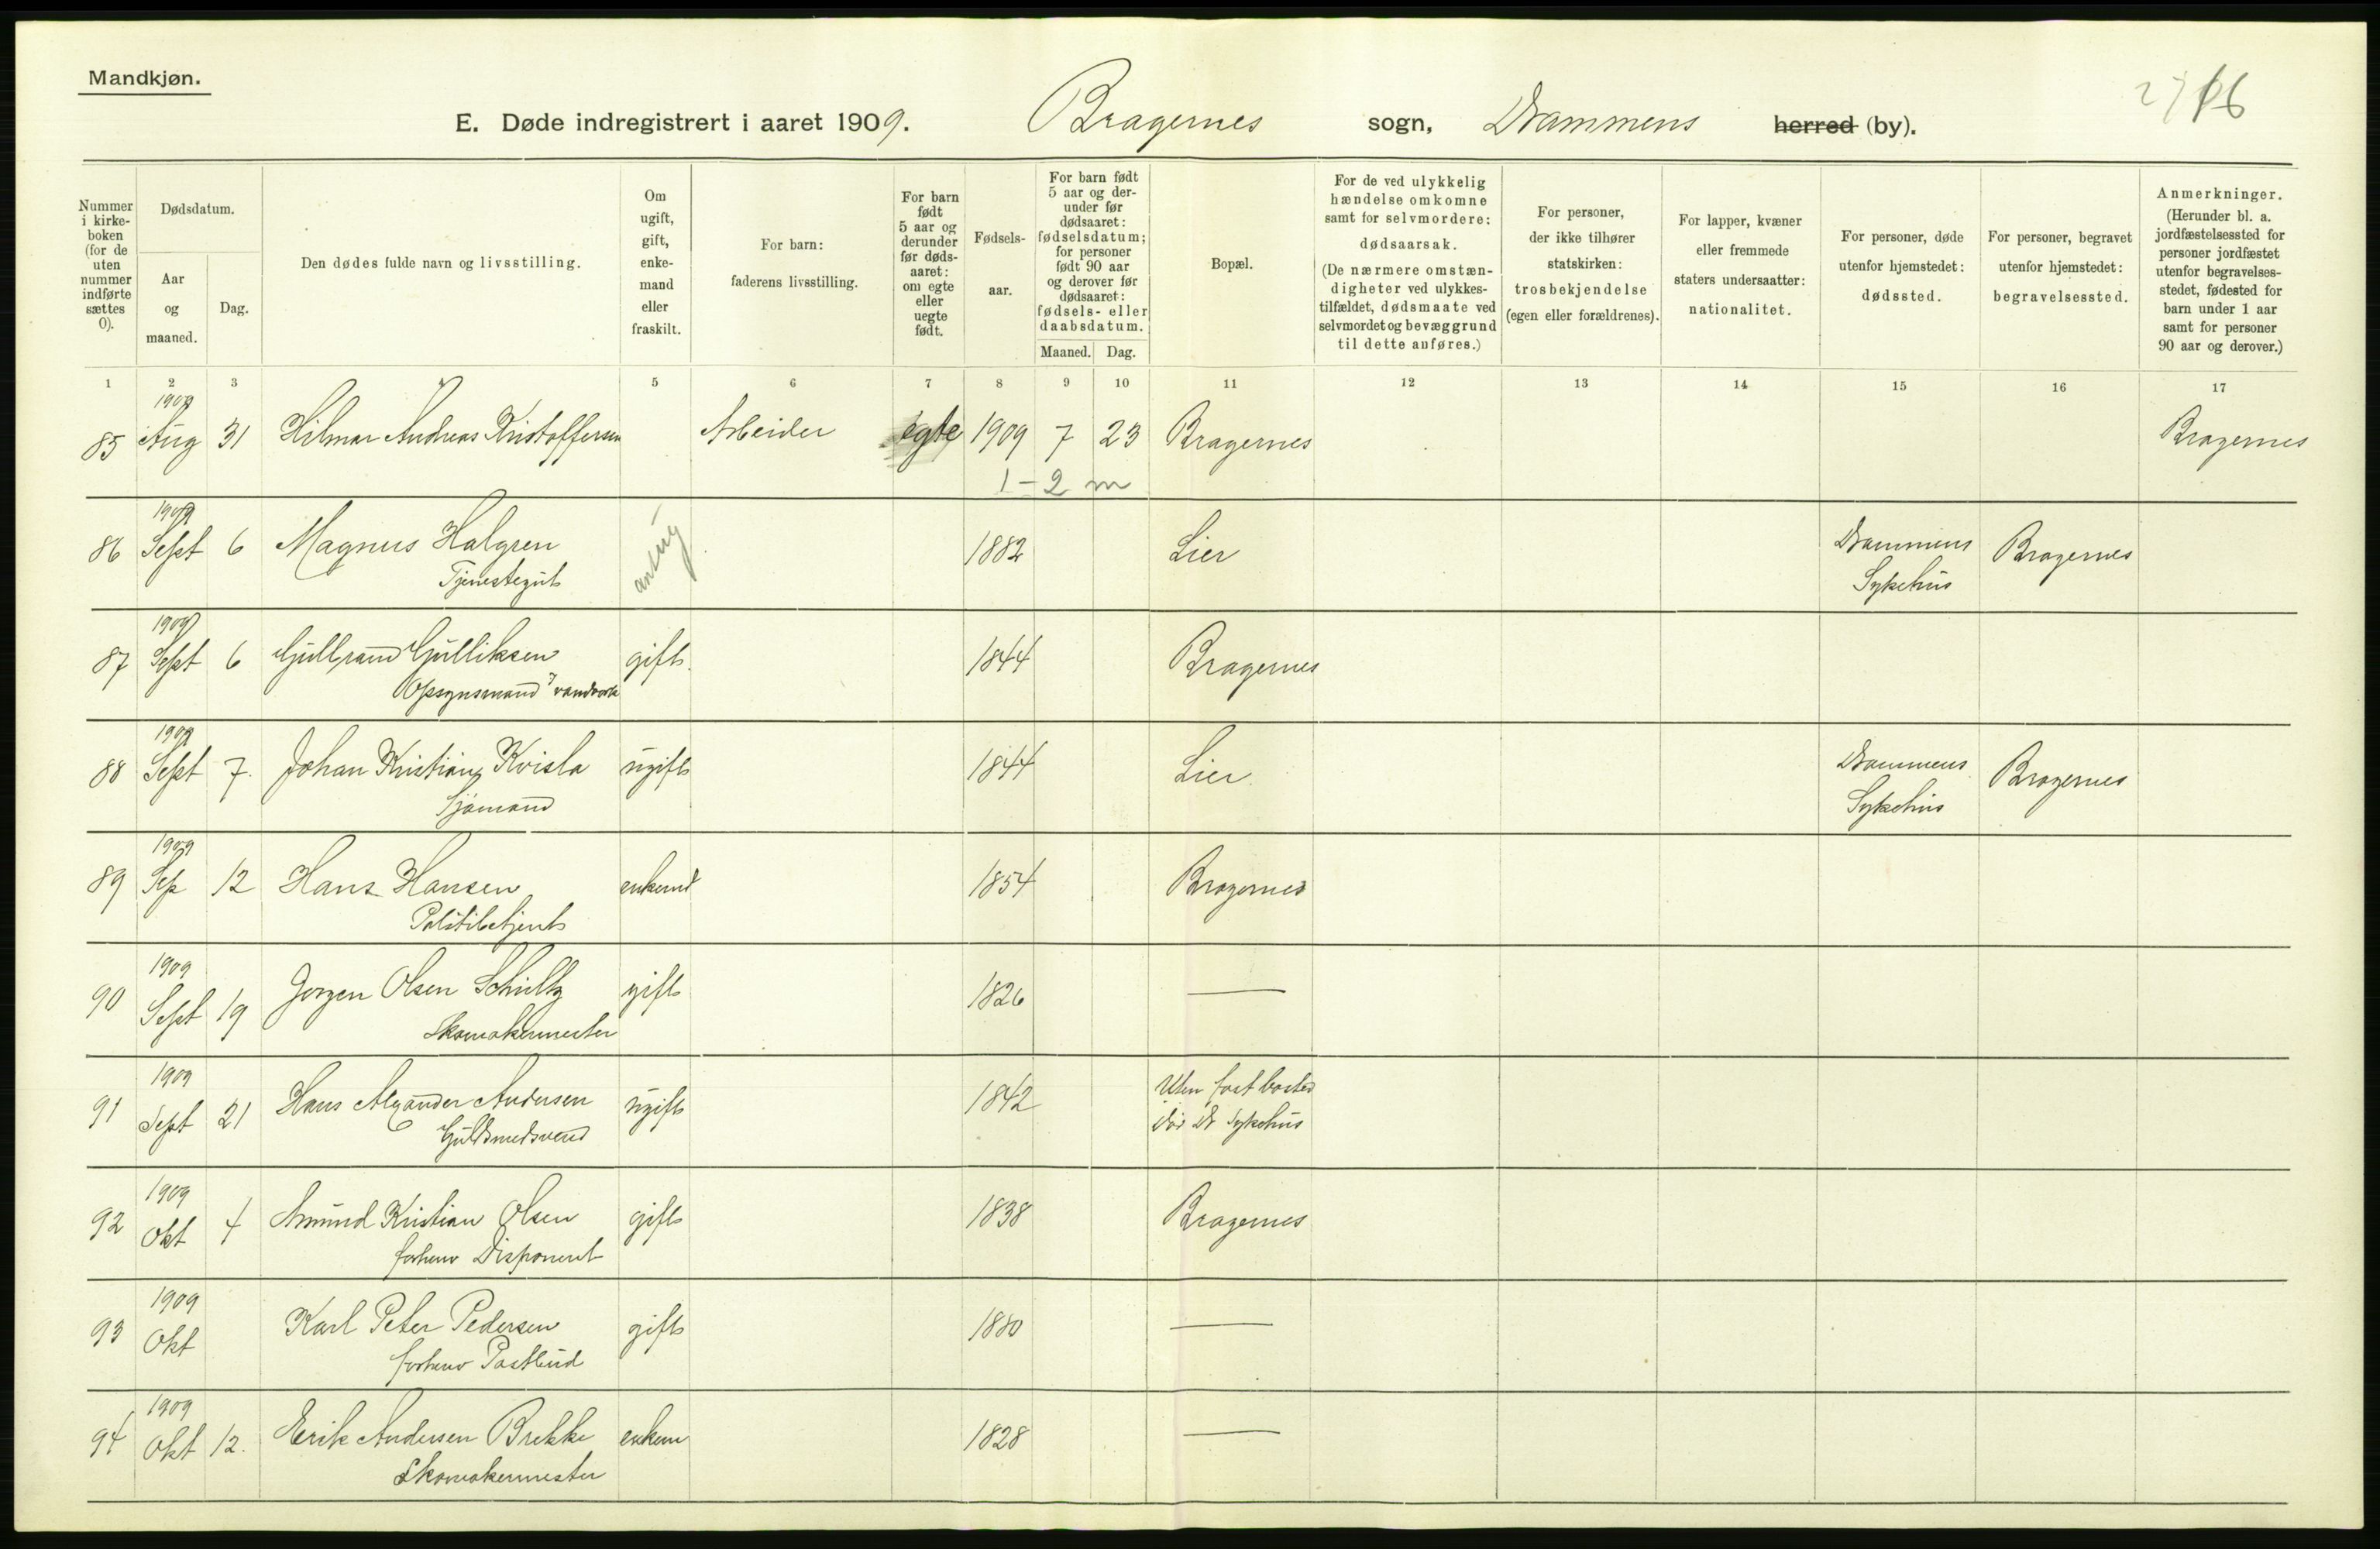 Mandkjøn.
E. Døde indregistrert i aaret 1909. Bragernes sogn, Drammens herred (by).
Nummer i kirke-boken (for de uten nummer indførte sættes 0).
Dødsdatum.
Aar og maaned.
Dag.
Den dødes fulde navn og livsstilling.
Om ugift, gift, enke-mand eller fraskilt.
For barn: faderens livsstilling.
For barn født 5 aar og derunder før døds-aaret: om egte eller uegte født.
Fødsels-aar.
For barn født 5 aar og der-under før dødsaaret: fødselsdatum; for personer født 90 aar og derover før dødsaaret: fødsels- eller daabsdatum.
Maaned. Dag.
Bopæl.
For de ved ulykkelig hændelse omkomne samt for selvmordere: dødsaarsak. (De nærmere omstæn-digheter ved ulykkes-tilfældet, dødsmaate ved selvmordet og bevæggrund til dette anføres.)
For personer, der ikke tilhører statskirken: trosbekjendelse (egen eller forældrenes).
For lapper, kvæner eller fremmede staters undersaatter: nationalitet.
For personer, døde utenfor hjemstedet: dødssted.
For personer, begravet utenfor hjemstedet: begravelsessted.
Anmerkninger. (Herunder bl. a. jordfæstelsessted for personer jordfæstet utenfor begravelses-stedet, fødested for barn under 1 aar samt for personer 90 aar og derover.)
1 2 3 5 6 7 8 9 10 11 12 13 14 15 16 17
1909
85 Aug 31 Hilmar Andreas Kristoffersen Arbeider egte 1909 7 23 Bragernes Bragernes
1-2 m
1909
86 Sept 6 Magnus Halgren ant ug 1882 Lier Drammens Sykehus Bragernes
Tjenestegut
1909
87 Sept 6 Gulbrand Gulliksen gift 1844 Bragernes
Opsynsmand v vandverk
1909
88 Sept 7. Johan Kristian Kvisla ugift 1844 Lier Drammens Sykehus Bragernes
Sjømand
1909
89 Sep 12 Hans Hansen enkemd 1854 Bragernes
Politibetjent
1909
90 Sept 19 Jørgen Olsen Schultz gift 1826 —
Skomakermester
1909
91 Sept 21 Hans Alexander Andersen ugift 1842 Uten fast bosted
Guldsmedsvend død Dr Sykehus
1909
92 Okt 4 Amund Kristian Olsen gift 1838 Bragernes
forhenv Disponent
1909
93 Okt Karl Peter Pedersen gift 1880 —
forhenv Postbud
1909
94 Okt 12. Erik Andersen Brekke enkem 1828 —
Skomakermester